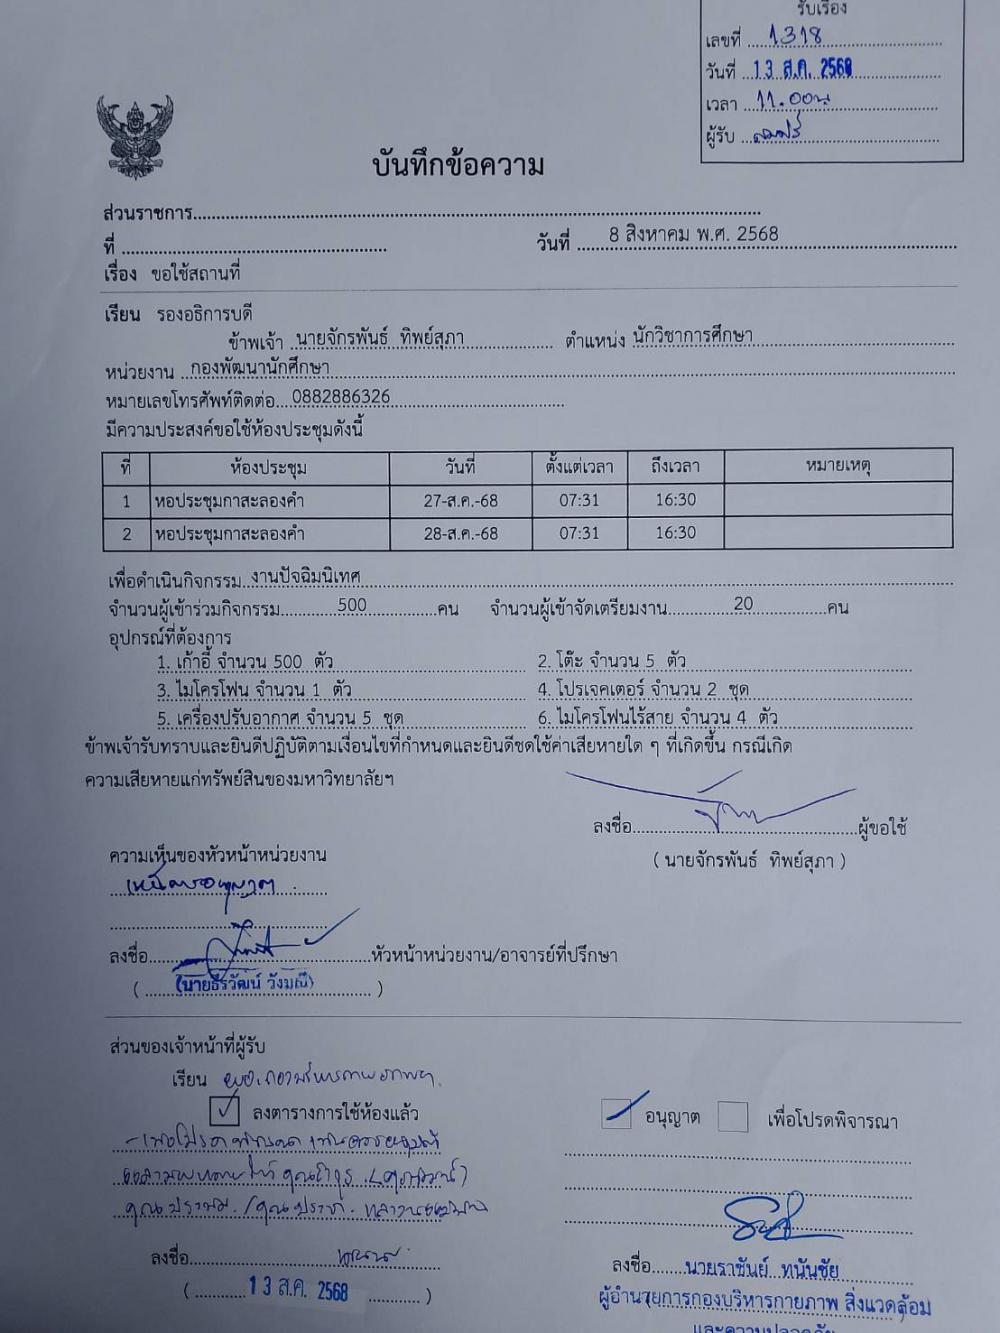 รับเรื่อง
เลขที่ 1318
วันที่ 13 ส.ค. 2568
เวลา 11.00น
ผู้รับ
บันทึกข้อความ
ส่วนราชการ
ที่ วันที่ 8 สิงหาคม พ.ศ. 2568
เรื่อง ขอใช้สถานที่
เรียน รองอธิการบดี
ข้าพเจ้า นายจักรพันธ์ ทิพย์สุภา ตำแหน่ง นักวิชาการศึกษา
หน่วยงาน กองพัฒนานักศึกษา
หมายเลขโทรศัพท์ติดต่อ 0882886326
มีความประสงค์ขอใช้ห้องประชุมดังนี้
ที่ ห้องประชุม วันที่ ตั้งแต่เวลา ถึงเวลา หมายเหตุ
1 หอประชุมกาสะลองคำ 27-ส.ค.-68 07:31 16:30
2 หอประชุมกาสะลองคำ 28-ส.ค.-68 07:31 16:30
เพื่อดำเนินกิจกรรม งานปัจฉิมนิเทศ
จำนวนผู้เข้าร่วมกิจกรรม 500 คน จำนวนผู้เข้าจัดเตรียมงาน 20 คน
อุปกรณ์ที่ต้องการ
1. เก้าอี้ จำนวน 500 ตัว 2. โต๊ะ จำนวน 5 ตัว
3. ไมโครโฟน จำนวน 1 ตัว 4. โปรเจคเตอร์ จำนวน 2 ชุด
5. เครื่องปรับอากาศ จำนวน 5 ชุด 6. ไมโครโฟนไร้สาย จำนวน 4 ตัว
ข้าพเจ้ารับทราบและยินดีปฏิบัติตามเงื่อนไขที่กำหนดและยินดีชดใช้ค่าเสียหายใด ๆ ที่เกิดขึ้น กรณีเกิด
ความเสียหายแก่ทรัพย์สินของมหาวิทยาลัยฯ
ลงชื่อ ผู้ขอใช้
(นายจักรพันธ์ ทิพย์สุภา)
ความเห็นของหัวหน้าหน่วยงาน
เห็นควรอนุญาต
ลงชื่อ หัวหน้าหน่วยงาน/อาจารย์ที่ปรึกษา
(นายธีรวัฒน์ วังมณี)
ส่วนของเจ้าหน้าที่ผู้รับ
เรียน
ลงตารางการใช้ห้องแล้ว
อนุญาต เพื่อโปรดพิจารณา
ลงชื่อ
(13 ส.ค. 2568)
ลงชื่อ นายราชันย์ ทนันชัย
ผู้อำนวยการกองบริหารกายภาพ สิ่งแวดล้อม
และความปลอดภัย